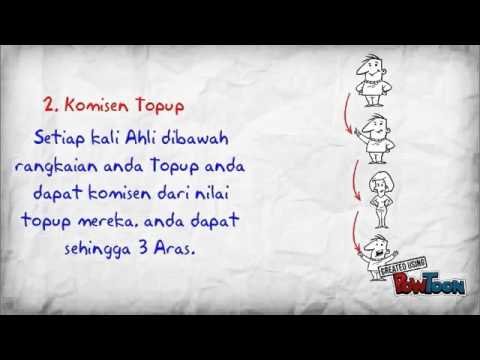 2. Komisen Topup
Setiap kali Ahli dibawah
rangkaian anda Topup anda
dapat komisen dari nilai
topup mereka. anda dapat
sehingga 3 Aras.
CREATED USING
POWTOON